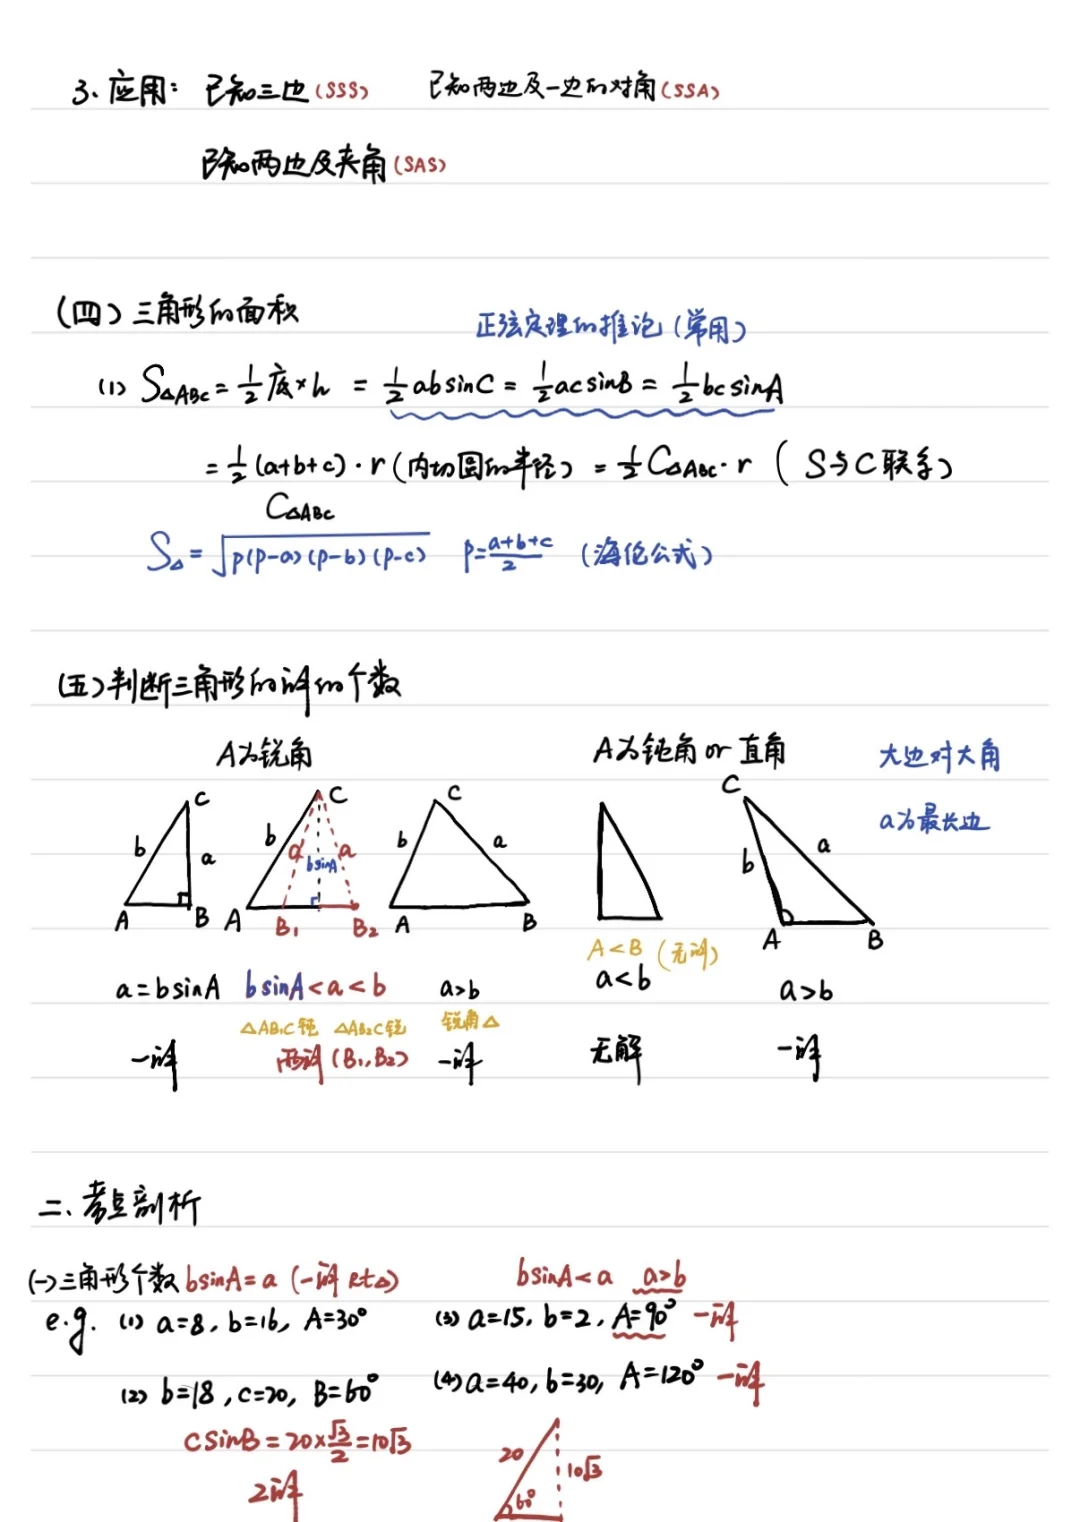 3、应用： 已知三边(SSS) 已知两边及一边的对角(SSA)
已知两边及夹角(SAS)
(四) 三角形的面积
正弦定理的推论(常用)
(1) S△ABC = 1/2 底×h = 1/2 absinC = 1/2 acsinB = 1/2 bcsinA
= 1/2 (a+b+c)·r (内切圆的半径) = 1/2 C△ABC·r ( S与C联系)
C△ABC
S△ = √(p(p-a)(p-b)(p-c)) p=(a+b+c)/2 (海伦公式)
(五)判断三角形的解的个数
A为锐角 A为钝角 or 直角 大边对大角
a为最长边
C C C C
b a b a a b a b a
bsinA
A B A B₁ B₂ A B A B
A<B (无解)
a=bsinA bsinA<a<b a>b a<b a>b
△AB₁C钝 △AB₂C锐 锐角△
一解 两解(B₁,B₂) 一解 无解 一解
二、考点剖析
(一)三角形个数 bsinA=a (一解 Rt△) bsinA<a a>b
e.g. (1) a=8, b=16, A=30° (3) a=15, b=2, A=90° 一解
(2) b=18, c=20, B=60° (4) a=40, b=30, A=120° 一解
CsinB=20×√3/2=10√3
20 10√3
2解 60°